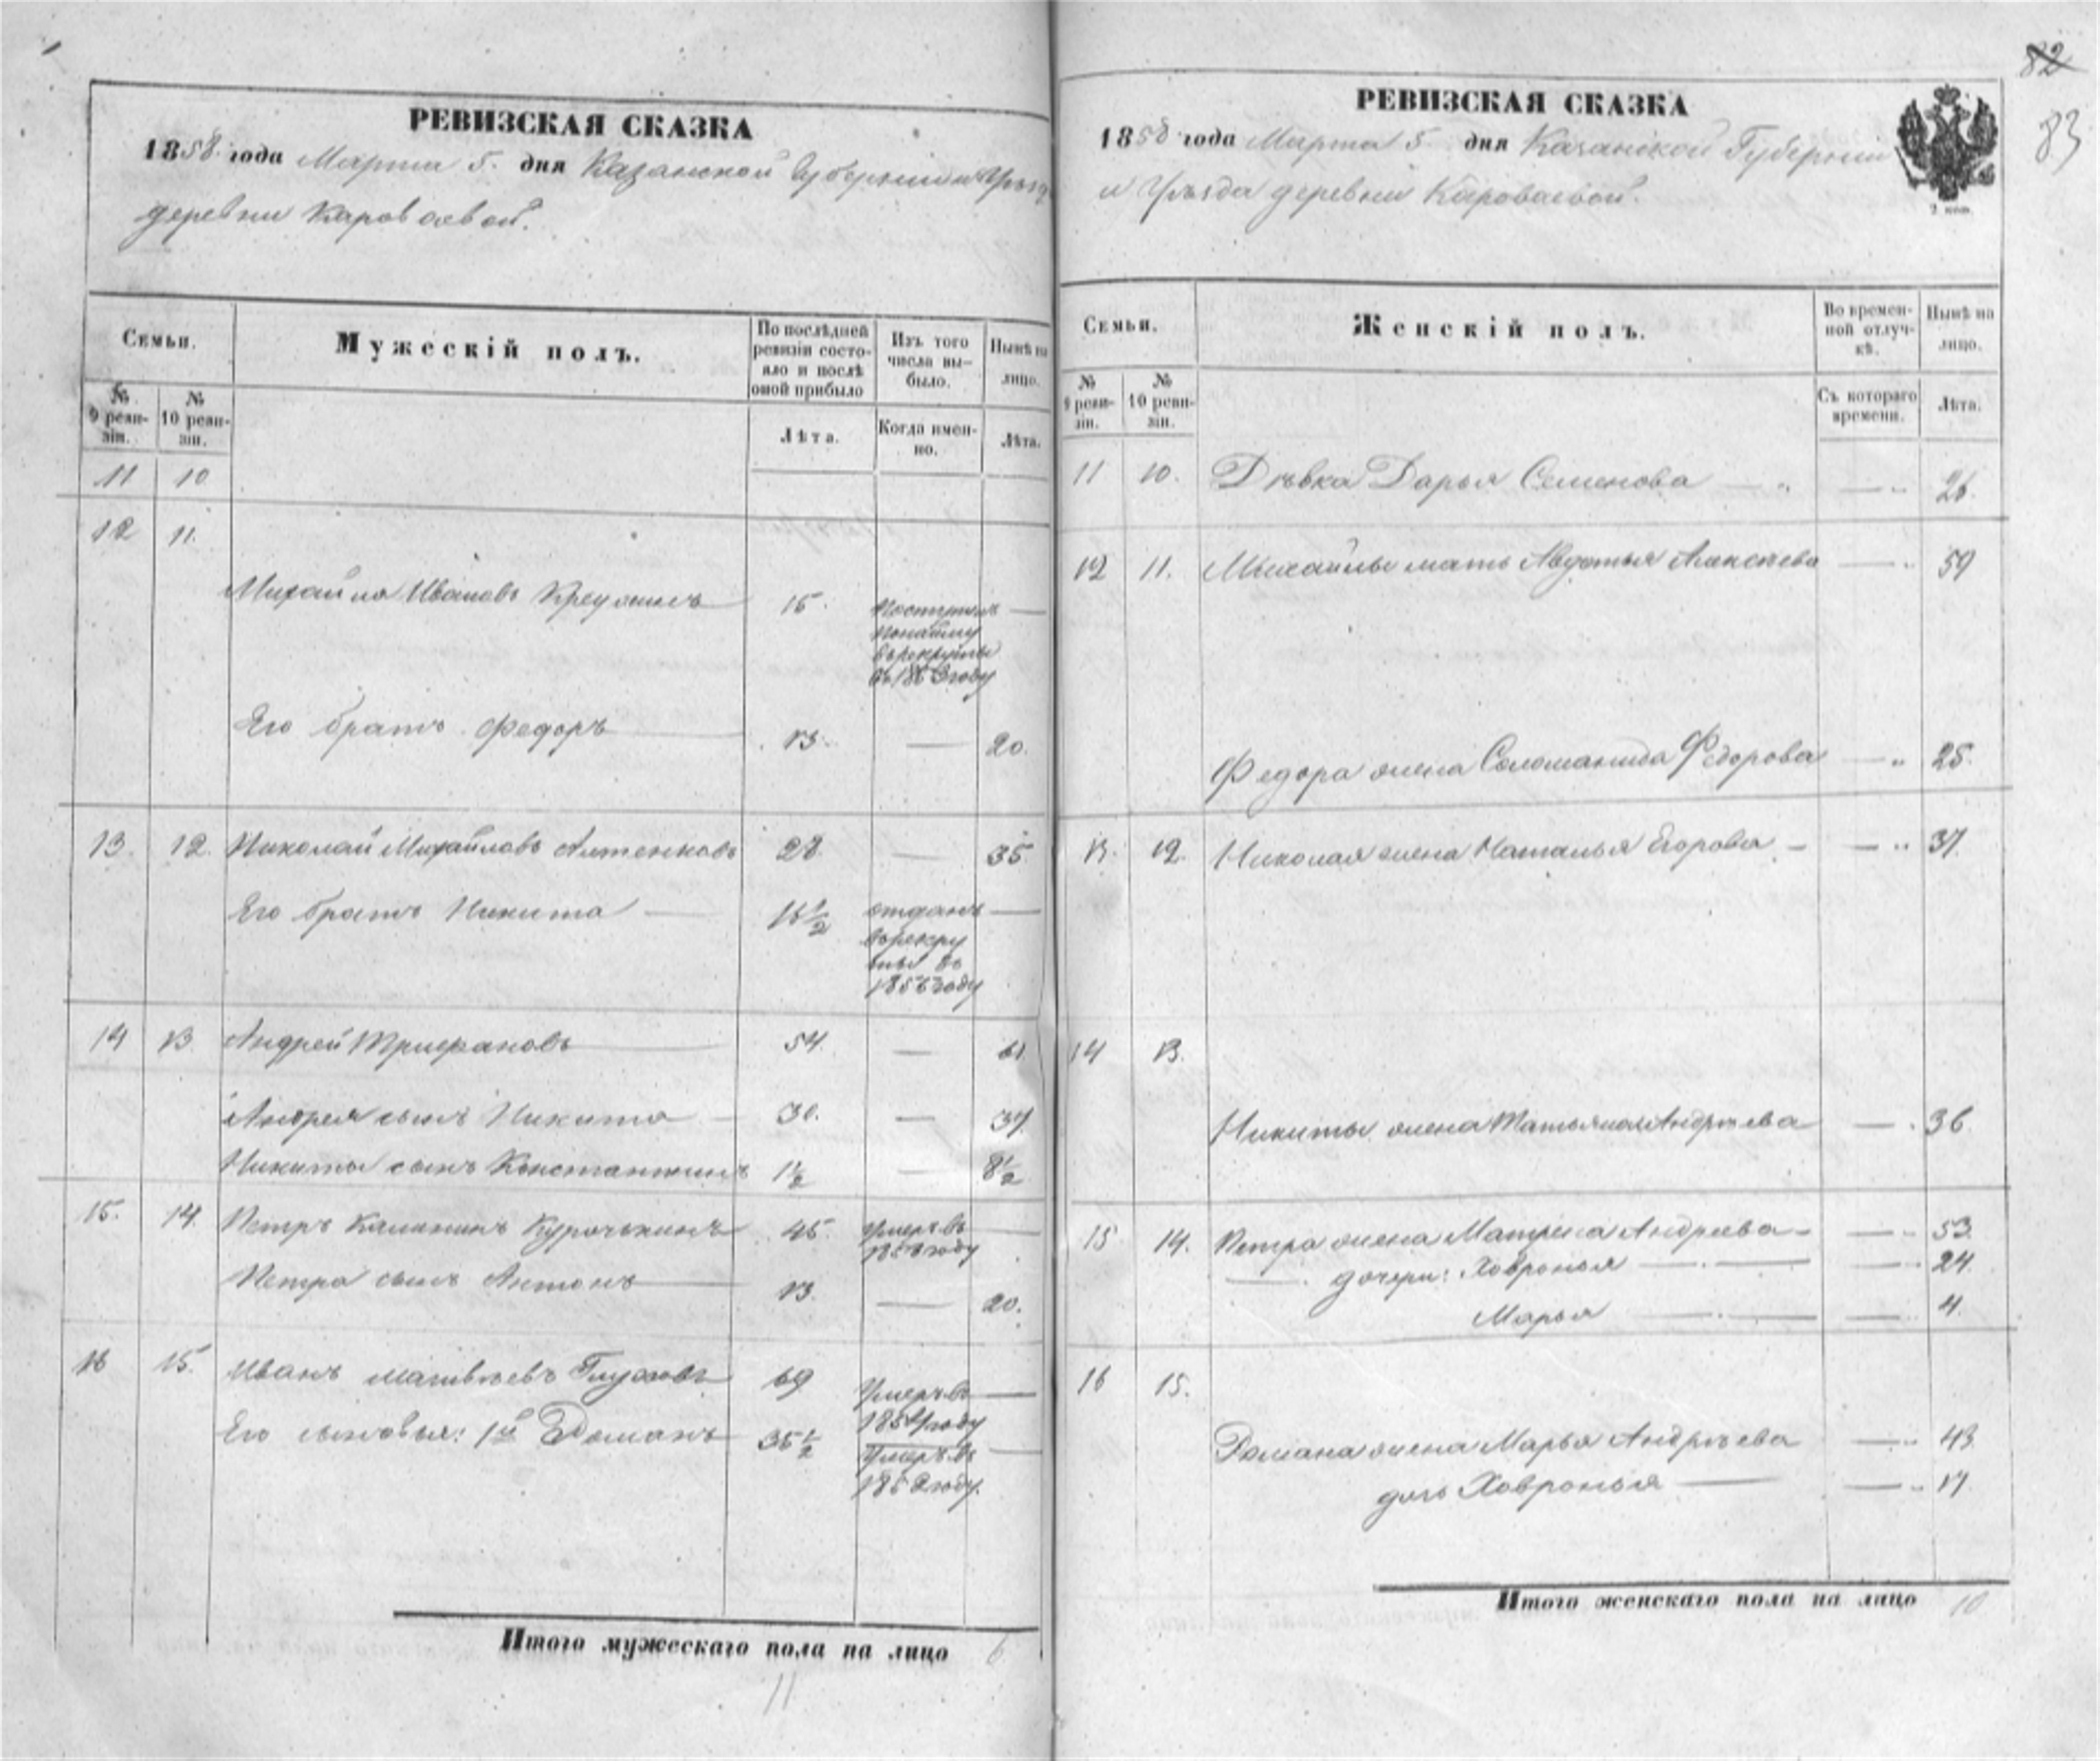 82
83
РЕВИЗСКАЯ СКАЗКА
1858 года Марта 5. дня Казанской Губернии и Уѣзда
деревни Кароваевой.
Семьи.
Мужескій полъ.
По послѣдней ревизіи состояло и послѣ оной прибыло
Изъ того числа выбыло.
Нынѣ на лицо.
№ 9 ревизіи.
№ 10 ревизіи.
Лѣта.
Когда именно.
Лѣта.
11 10
12 11.
Михайла Ивановъ 15. Поступилъ
по найму
въ рекруты
въ 1853 году
Его братъ Федоръ 13. 20.
13. 12. Николай Михайловъ 28 35
Его братъ Никита 15 1/2 отданъ
въ рекру
ты въ
1855 году
14 13 Андрей Трифановъ 54. 61.
Андрея сынъ Никита 30. 37.
Никиты сынъ Константинъ 1 1/2 8 1/2
15. 14. Петръ Калининъ Курочькинъ 45. Умеръ въ
году
Петра сынъ Антонъ 13. 20.
16 15. Иванъ Матвѣевъ Глуховъ 69 Умеръ въ
1854 году
Его сыновья: 1й Романъ 35 1/2 Умеръ въ
1852 году.
Итого мужескаго пола на лицо 6
11
РЕВИЗСКАЯ СКАЗКА
1858 года Марта 5. дня Казанской Губерніи
и Уѣзда деревни Кароваевой.
2 коп.
Семьи.
Женскій полъ.
Во временной отлучкѣ.
Нынѣ на лицо.
№ 9 ревизіи.
№ 10 ревизіи.
Съ котораго времени.
Лѣта.
11 10. Дѣвка Дарья Семенова 26.
12 11. Михайлы мать Авдотья Алексѣева 59
Федора жена Соломанида Федорова 25.
13. 12. Николая жена Наталья Егорова 37.
14 13.
Никиты жена Татьяна Андрѣева 36.
15 14. Петра жена Матрена Андреева 53.
дочери: Ховронья 24.
Марья 4.
16 15.
Романа жена Марья Андрѣева 43.
дочь Ховронья 17.
Итого женскаго пола на лицо 10